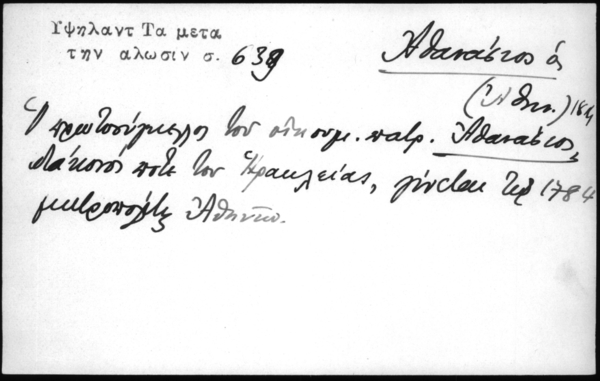 Υψηλαντ Τα μετα
την αλωσιν σ. 639
Ἀθανάσιος ὁ
(Ἀθην.)
Ὁ πρωτοσύγκελλος τοῦ οἰκουμ. πατρ. Ἀθανάσιος,
διάκονός ποτε τοῦ Ἡρακλείας, γίνεται τῷ 1784
μητροπολίτης Ἀθηνῶν.